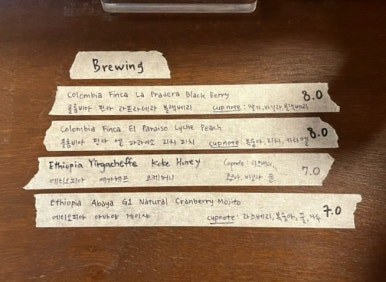 Brewing
Colombia Finca La Pradera Black Berry 8.0
콜롬비아 핀카 라프라데라 블랙베리 Cupnote: 딸기,
Colombia Finca El Paraiso Lychee Peach 8.0
콜롬비아 핀카 엘 파라이소 리치 피치 Cupnote: 복숭아, 리치,
Ethiopia Yirgacheffe Koke Honey Cupnote: 7.0
에티오피아 예가체프 코케허니
Ethiopia Abaya G1 Natural Cranberry Mojito 7.0
에티오피아 아바야 게이샤 Cupnote: 라즈베리, 복숭아, 꿀,